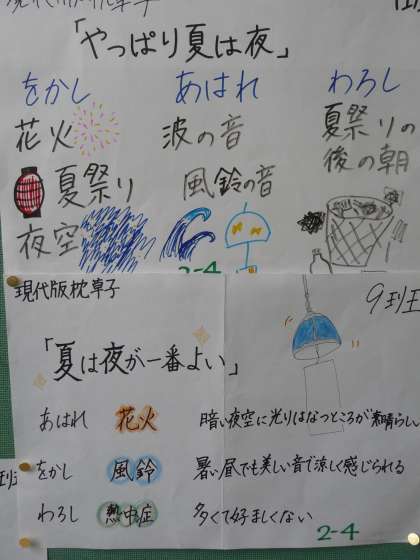 現代版枕草子
「やっぱり夏は夜」
をかし あはれ わろし
花火 波の音 夏祭りの
後の朝
夏祭り 風鈴の音
夜空
2-4
現代版枕草子 9班
「夏は夜が一番よい」
あはれ 花火 暗い夜空に光りはなつところが素晴らしい
をかし 風鈴 暑い昼でも美しい音で涼しく感じられる
わろし 熱中症 多くて好ましくない
2-4
班